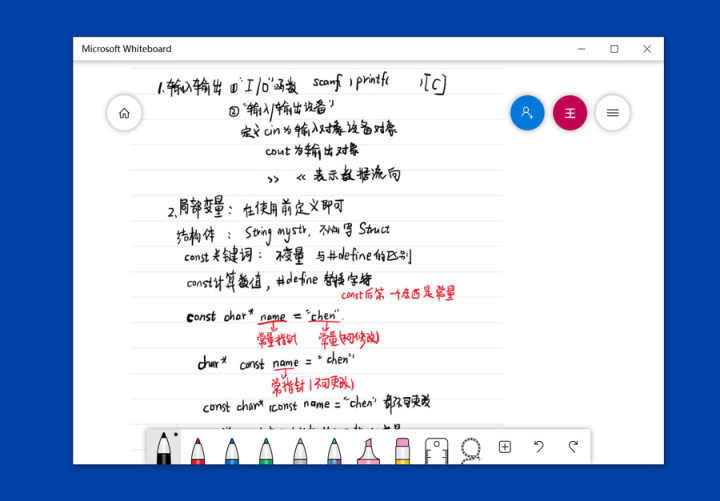 Microsoft Whiteboard
1.输入输出 ①"I/O"函数 scanf, printf( )[C]
②"输入/输出设备"
王
定义cin为输入对象设备对象
cout为输出对象
>> << 表示数据流向
2.局部变量：在使用前定义即可
结构体：String mystr, 不加写Struct
const关键词：不变量 与#define的区别
const计算数值，#define 替换字符
const后第一个东西是常量
const char* name = "chen".
常量指针 常量(不可修改)
char* const name = "chen"
常指针(不可更改)
const char* (const name = "chen" 都不可更改